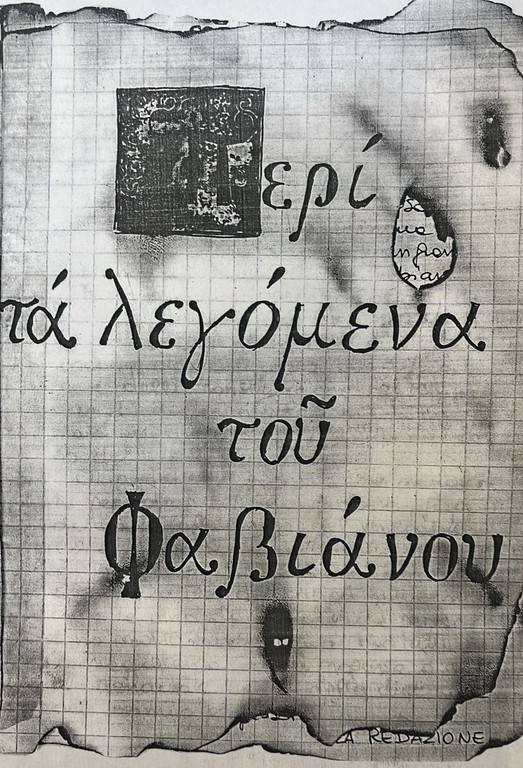 Περί
τά λεγόμενα
τοῦ
Φαβιάνου
LA REDAZIONE